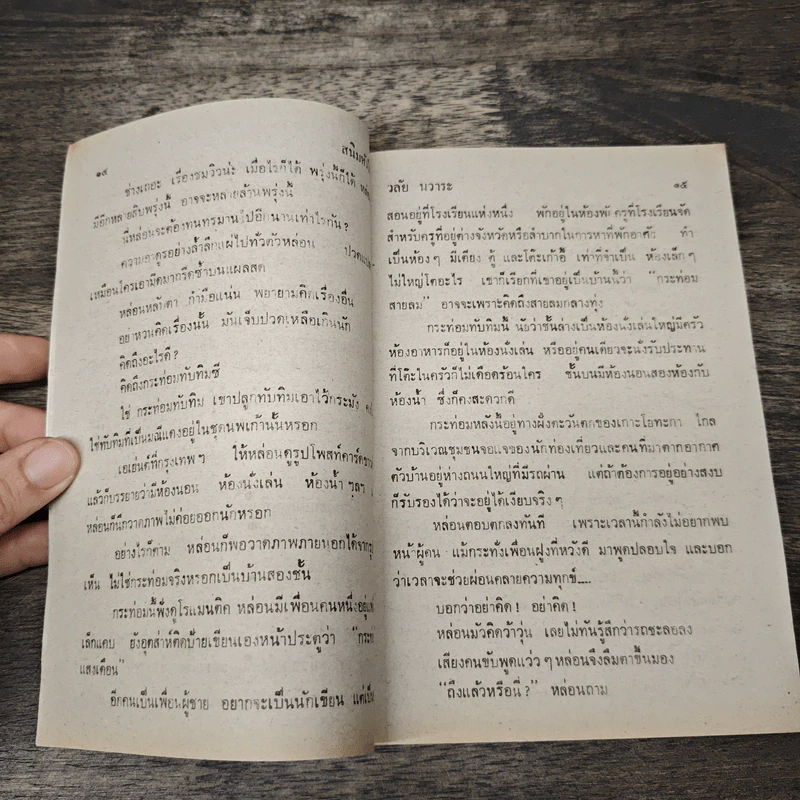 ๑๔
ช่างเถอะ เรื่องชมวิวน่ะ เมื่อไรก็ได้ พรุ่งนี้ก็ได้
มีอีกหลายสิบพรุ่งนี้ อาจจะหลายล้านพรุ่งนี้
นี่หล่อนจะต้องทนทรมานไปอีกนานเท่าไรกัน?
ความอาดูรอย่างล้ำลึกแผ่ไปทั่วตัวหล่อน
เหมือนใครเอามีดมากรีดซ้ำบนแผลสด
หล่อนหลับตา กำมือแน่น พยายามคิดเรื่องอื่น
อย่าหวนคิดเรื่องนั้น มันเจ็บปวดเหลือเกินนัก
คิดถึงอะไรดี?
คิดถึงกระท่อมทับทิมซี
ใช่ กระท่อมทับทิม เขาปลูกทับทิมเอาไว้กระมัง
ใช่ทับทิมที่เป็นมณีแดงอยู่ในชุดนพเก้านั้นหรอก
เอเย่นต์ที่กรุงเทพฯ ให้หล่อนดูรูปโพสท์คาร์ด
แล้วก็บรรยายว่ามีห้องนอน ห้องนั่งเล่น ห้องน้ำ ฯลฯ
หล่อนก็นึกวาดภาพไม่ค่อยออกนักหรอก
อย่างไรก็ตาม หล่อนก็พอวาดภาพภายนอกได้จาก
เห็น ไม่ใช่กระท่อมจริงหรอกเป็นบ้านสองชั้น
กระท่อมนี้ฟังดูโรแมนติค หล่อนมีเพื่อนคนหนึ่งอยู่
เล็กแคบ ยังอุตส่าห์ติดป้ายเขียนเองหน้าประตูว่า
แสงเดือน”
อีกคนเป็นเพื่อนผู้ชาย อยากจะเป็นนักเขียน
วลัย นวาระ ๑๕
สอนอยู่ที่โรงเรียนแห่งหนึ่ง พักอยู่ในห้องพักครูที่โรงเรียนจัด
สำหรับครูที่อยู่ต่างจังหวัดหรือลำบากในการหาที่พักอาศัย ทำ
เป็นห้องๆ มีเตียง ตู้ และโต๊ะเก้าอี้ เท่าที่จำเป็น ห้องเล็กๆ
ไม่ใหญ่โตอะไร เขาก็เรียกที่เขาอยู่เป็นบ้านนี้ว่า “กระท่อม
สายลม” อาจจะเพราะคิดถึงสายลมกลางทุ่ง
กระท่อมทับทิมนี้ นัยว่าชั้นล่างเป็นห้องนั่งเล่นใหญ่มีครัว
ห้องอาหารก็อยู่ในห้องนั่งเล่น หรืออยู่คนเดียวจะนั่งรับประทาน
ที่โต๊ะในครัวก็ไม่เดือดร้อนใคร ชั้นบนมีห้องนอนสองห้องกับ
ห้องน้ำ ซึ่งก็คงสะดวกดี
กระท่อมหลังนี้อยู่ทางฝั่งตะวันตกของเกาะโยทะกา ไกล
จากบริเวณชุมชนจอแจของนักท่องเที่ยวและคนที่มาตากอากาศ
ตัวบ้านอยู่ห่างถนนใหญ่ที่มีรถผ่าน แต่ถ้าต้องการอยู่อย่างสงบ
ก็รับรองได้ว่าจะอยู่ได้เงียบจริงๆ
หล่อนตอบตกลงทันที เพราะเวลานี้กำลังไม่อยากพบ
หน้าผู้คน แม้กระทั่งเพื่อนฝูงที่หวังดี มาพูดปลอบใจ และบอก
ว่าเวลาจะช่วยผ่อนคลายความทุกข์.....
บอกว่าอย่าคิด! อย่าคิด!
หล่อนมัวคิดว้าวุ่น เลยไม่ทันรู้สึกว่ารถชะลอลง
เสียงคนขับพูดแว่วๆ หล่อนจึงลืมตาขึ้นมอง
“ถึงแล้วหรือนี่?” หล่อนถาม